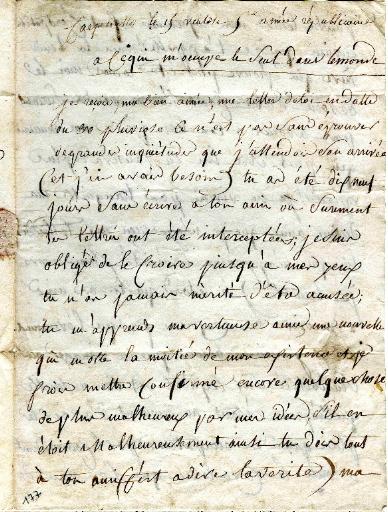 le 15 ventose 5e année républicaine
a Ce qui m'occupe le Seul dans le monde
je reçois ma bien aimée une lettre de toi en datte
du 20 pluviose Ce n'est pas sans éprouver
de grandes inquiétudes que j'attendois son arrivée
(et j'en avois besoin) tu as été dix neuf
jours sans écrire a ton ami ou surement
tes lettres ont été interceptées, je suis
obligé de le Croire puisqu'à mes yeux
tu n'as jamais mérité d'être accusée,
tu m'apprends ma vertueuse amie une nouvelle
qui m'ote la moitié de mon existence et je
Crois mettre Confirmé encore quelque chose
de plus malheureux par mes idées S'il en
étoit Malheureusement ainsi tu dois tout
à ton ami (C'est a dire la vérité) ma
177